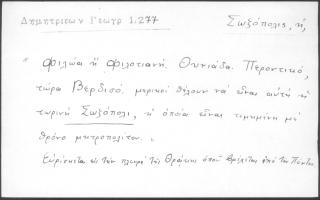 Δημητριεων Γεωγρ 1.277
Σωζόπολις, ἡ,
" Φιλέα ἢ Φιλοτιανή. Θυνιάδα. Περοντικό,
τώρα Βερδισό, μερικοὶ θέλουν νὰ εἶναι αὐτὴ ἡ
τωρινὴ Σωζόπολι, ἡ ὁποία εἶναι τιμημένη μὲ
θρόνο μητροπολίτου. "
Εὑρίσκεται εἰς τὴν πλευρὰ τῆς Θράκης ὁποῦ βρέχεται ἀπὸ τὸν Πόντον